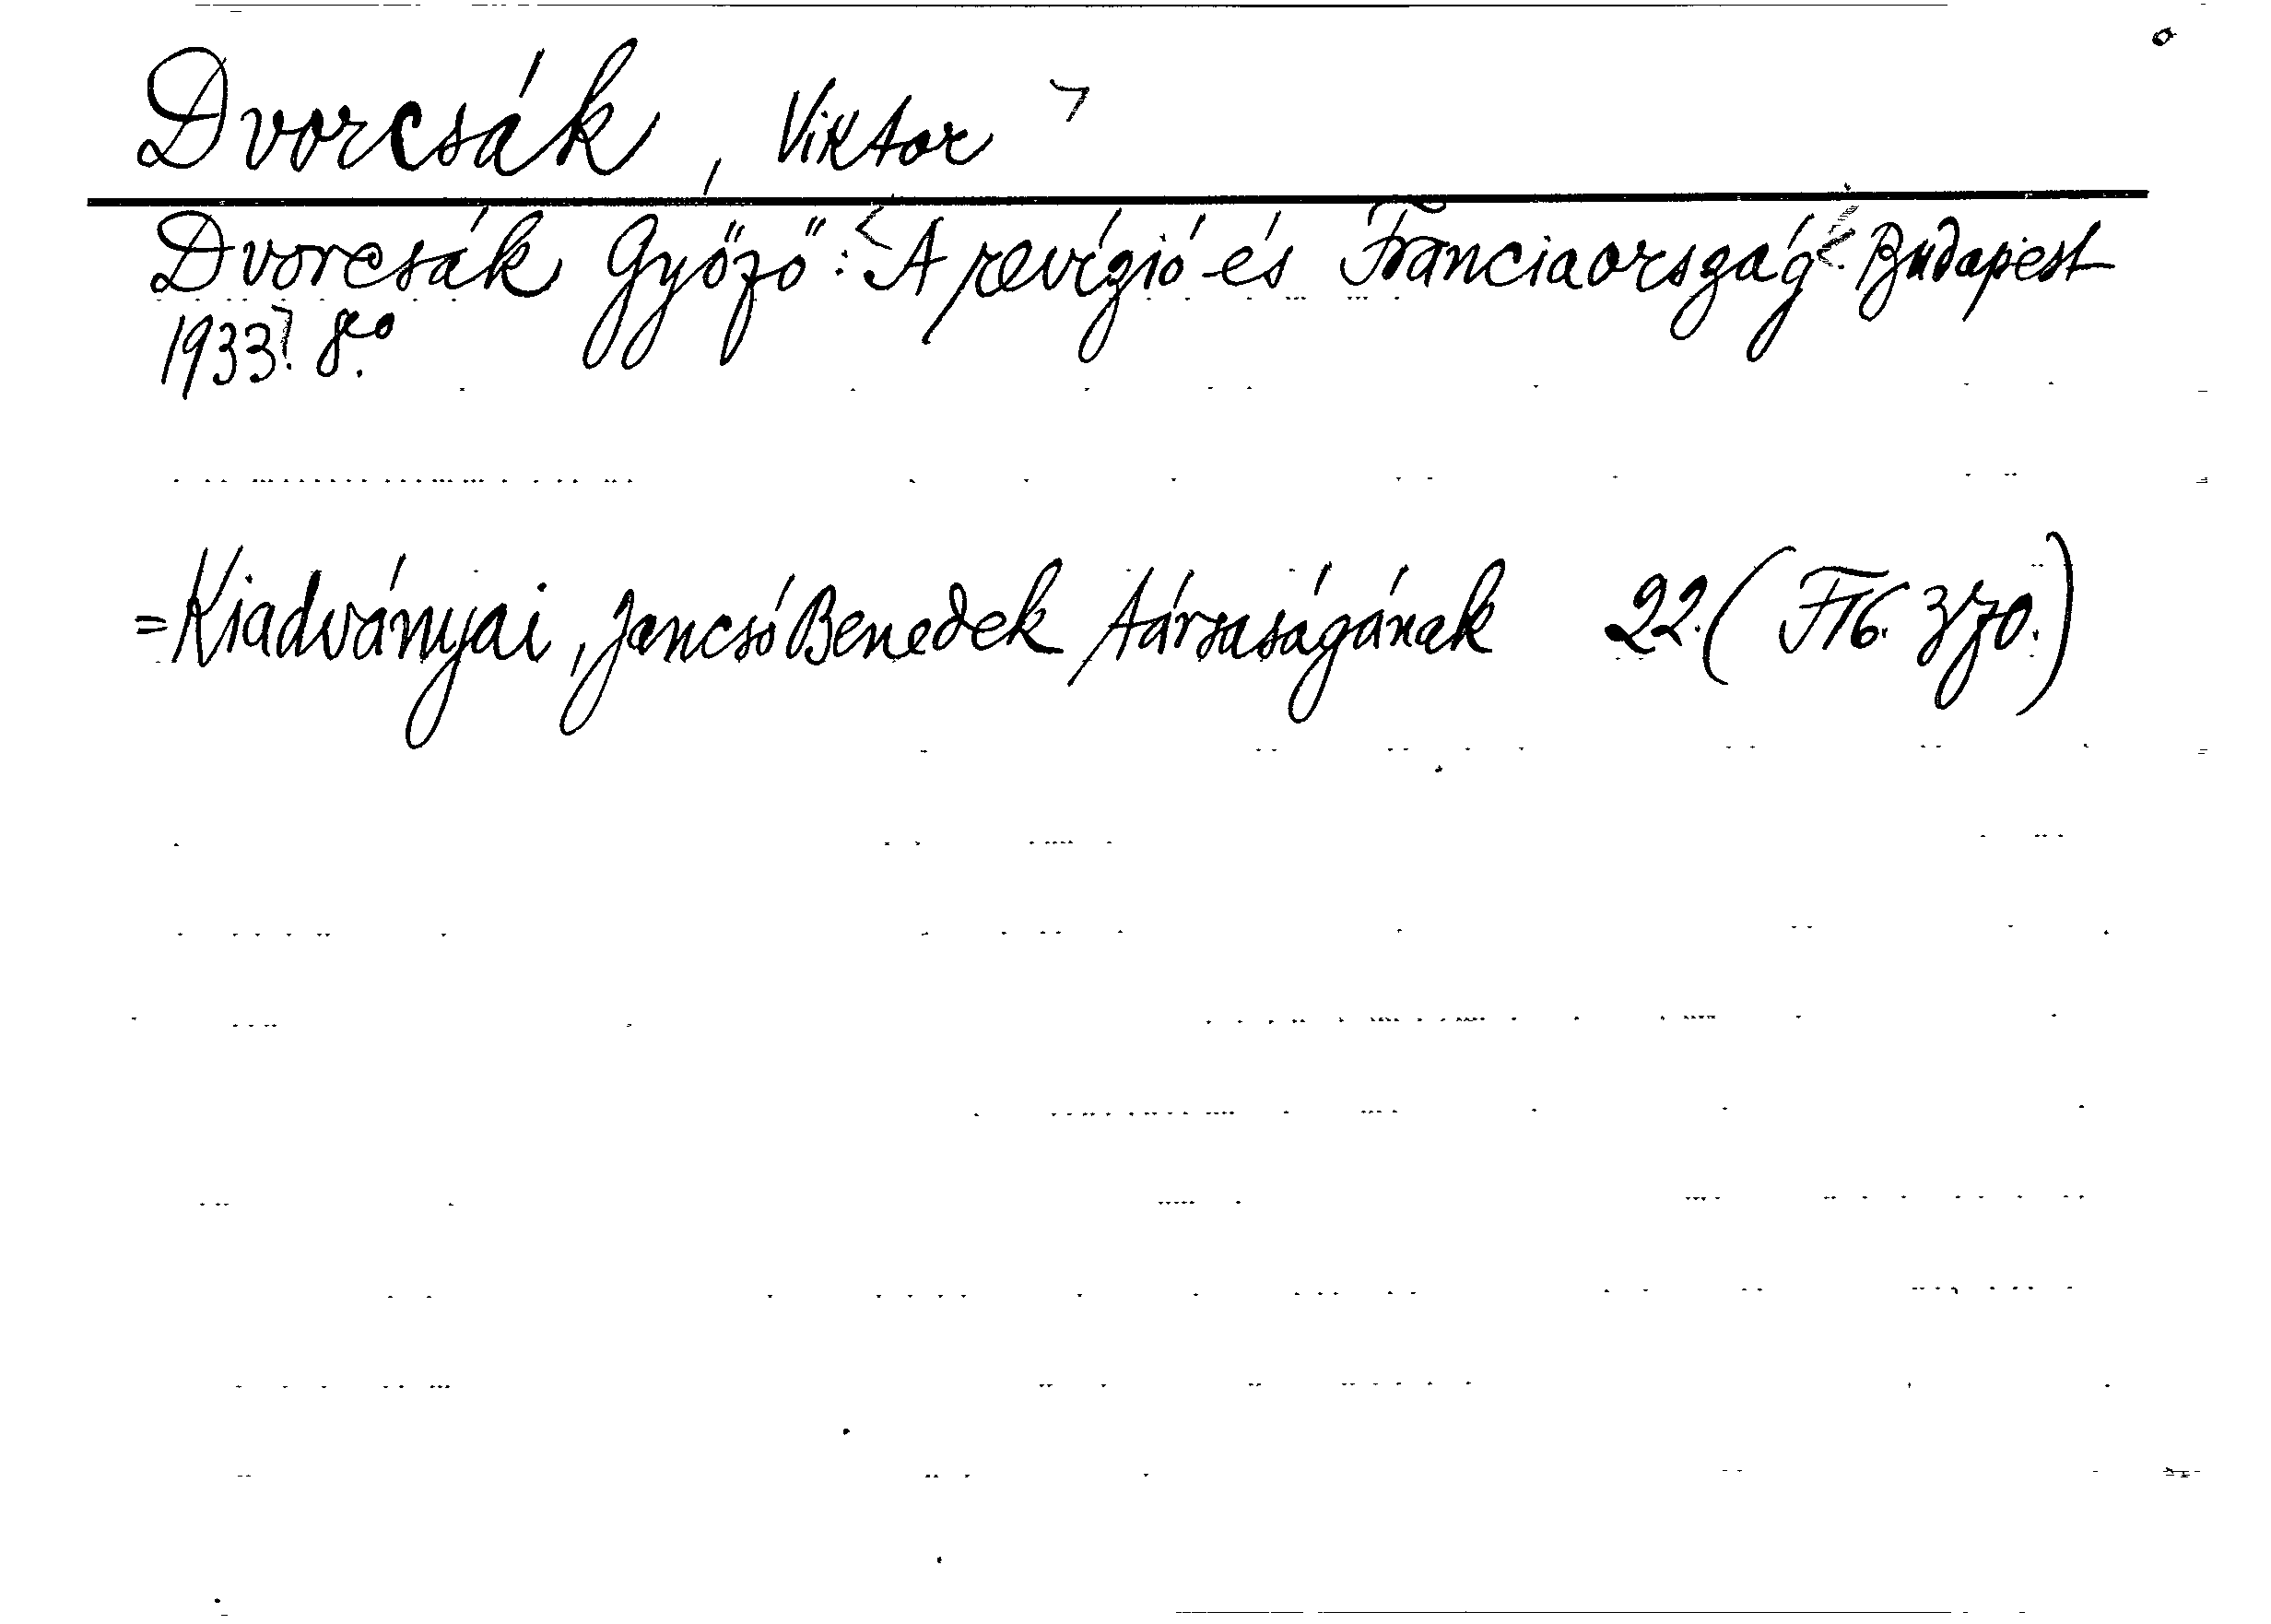 Dvorcsák, Viktor
Dvorcsák Győző: A revízió és Franciaország. Budapest
1933. 8°.
=Kiadványai, Jancsó Benedek társaságának 22.(F16. 370.)